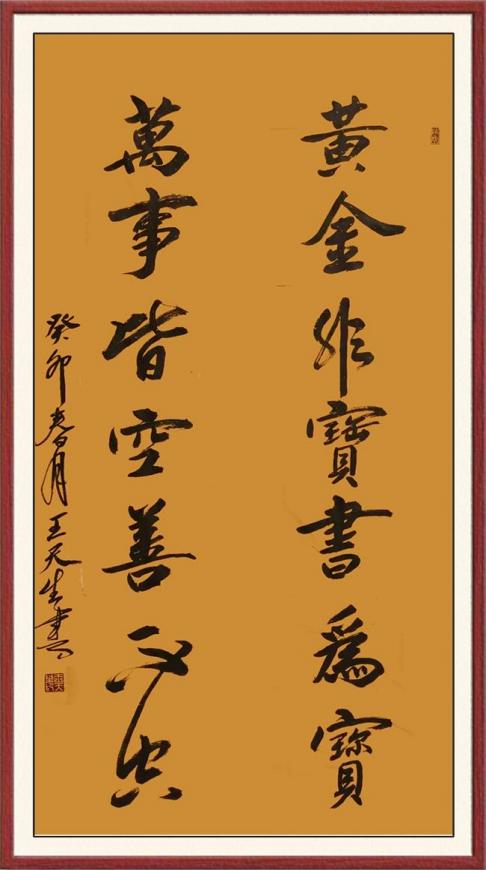 黃金非寶書爲寶
萬事皆空善不空
癸卯春月王天生書